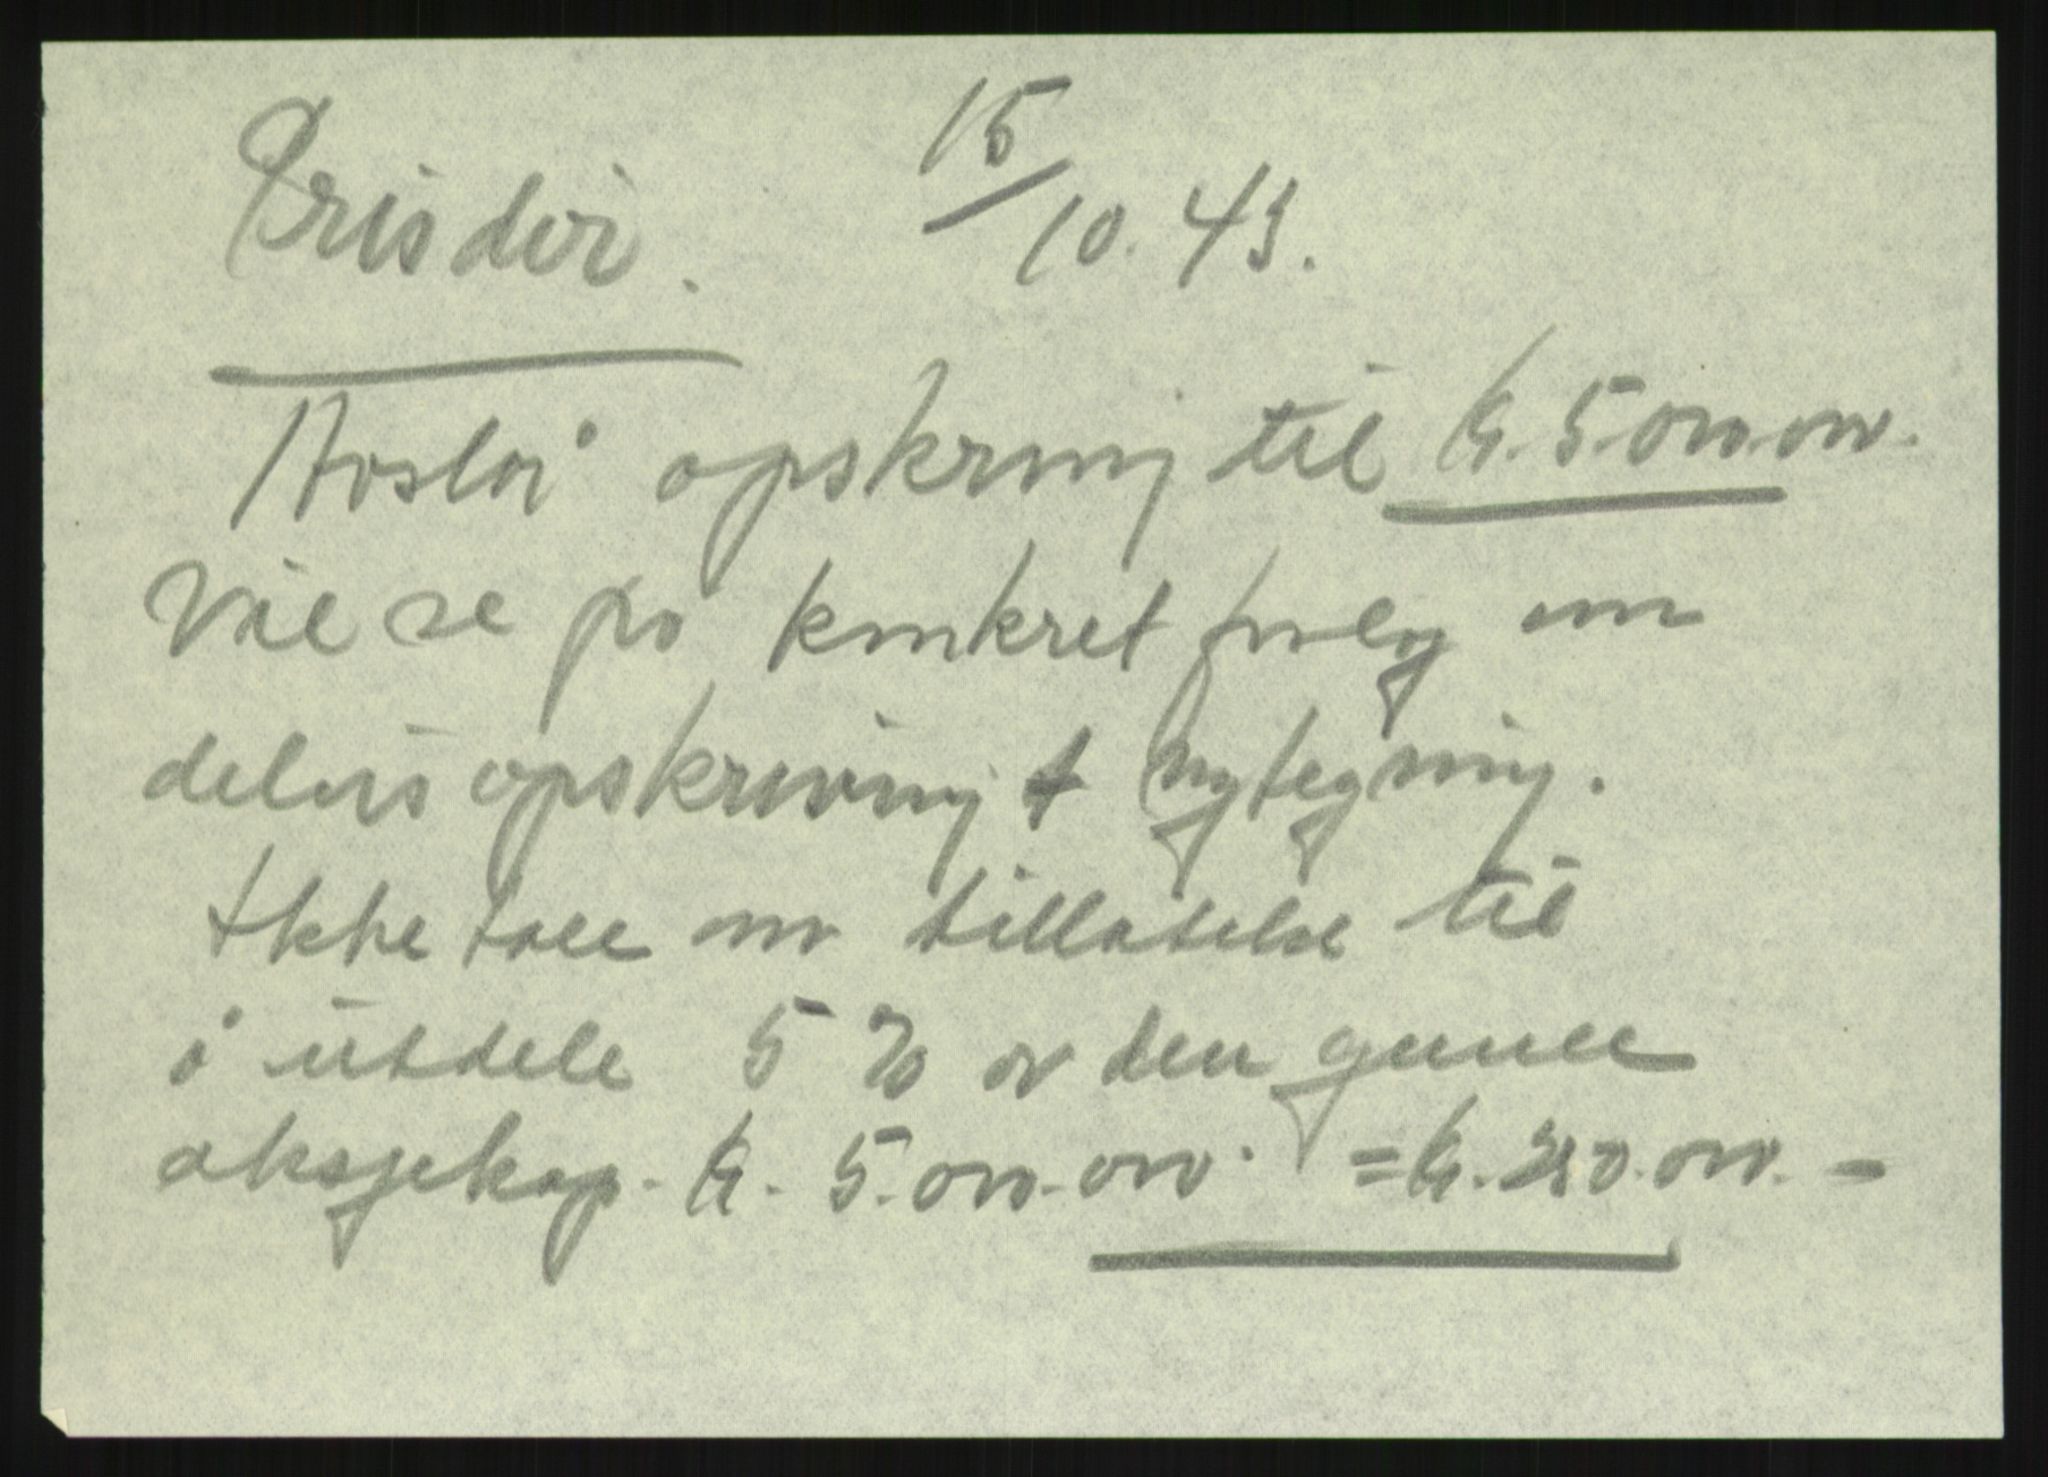 Prisdir. 15/10.43.
Avslår opskrivning til kr. 5.000.000.
Vil se på konkret forslag om
delvis opskrivning + nytegning.
Ikke tale om tillatelse til
å utdele 5 % av den gamle
aksjekap. kr. 5.000.000. = kr. 250.000.-